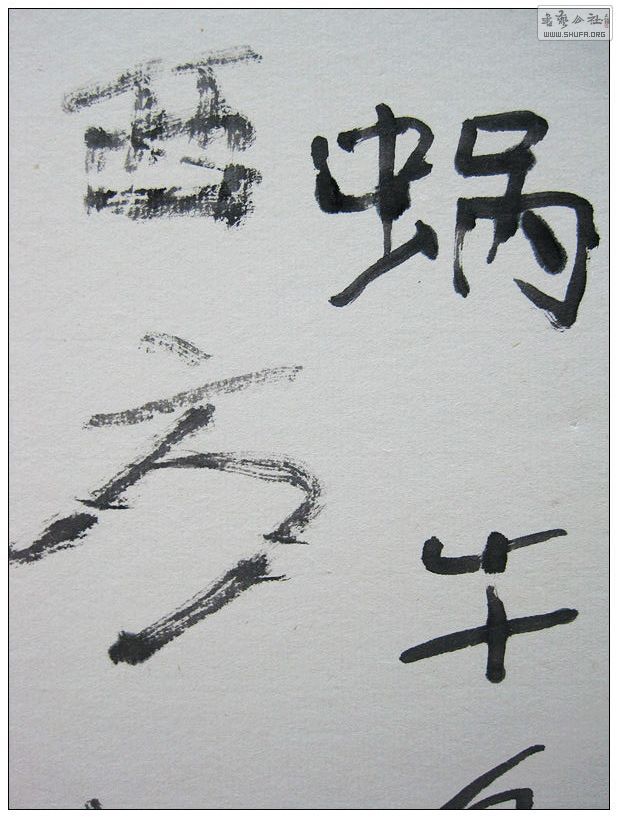 蜗牛
西方
书艺公社
WWW.SHUFA.ORG